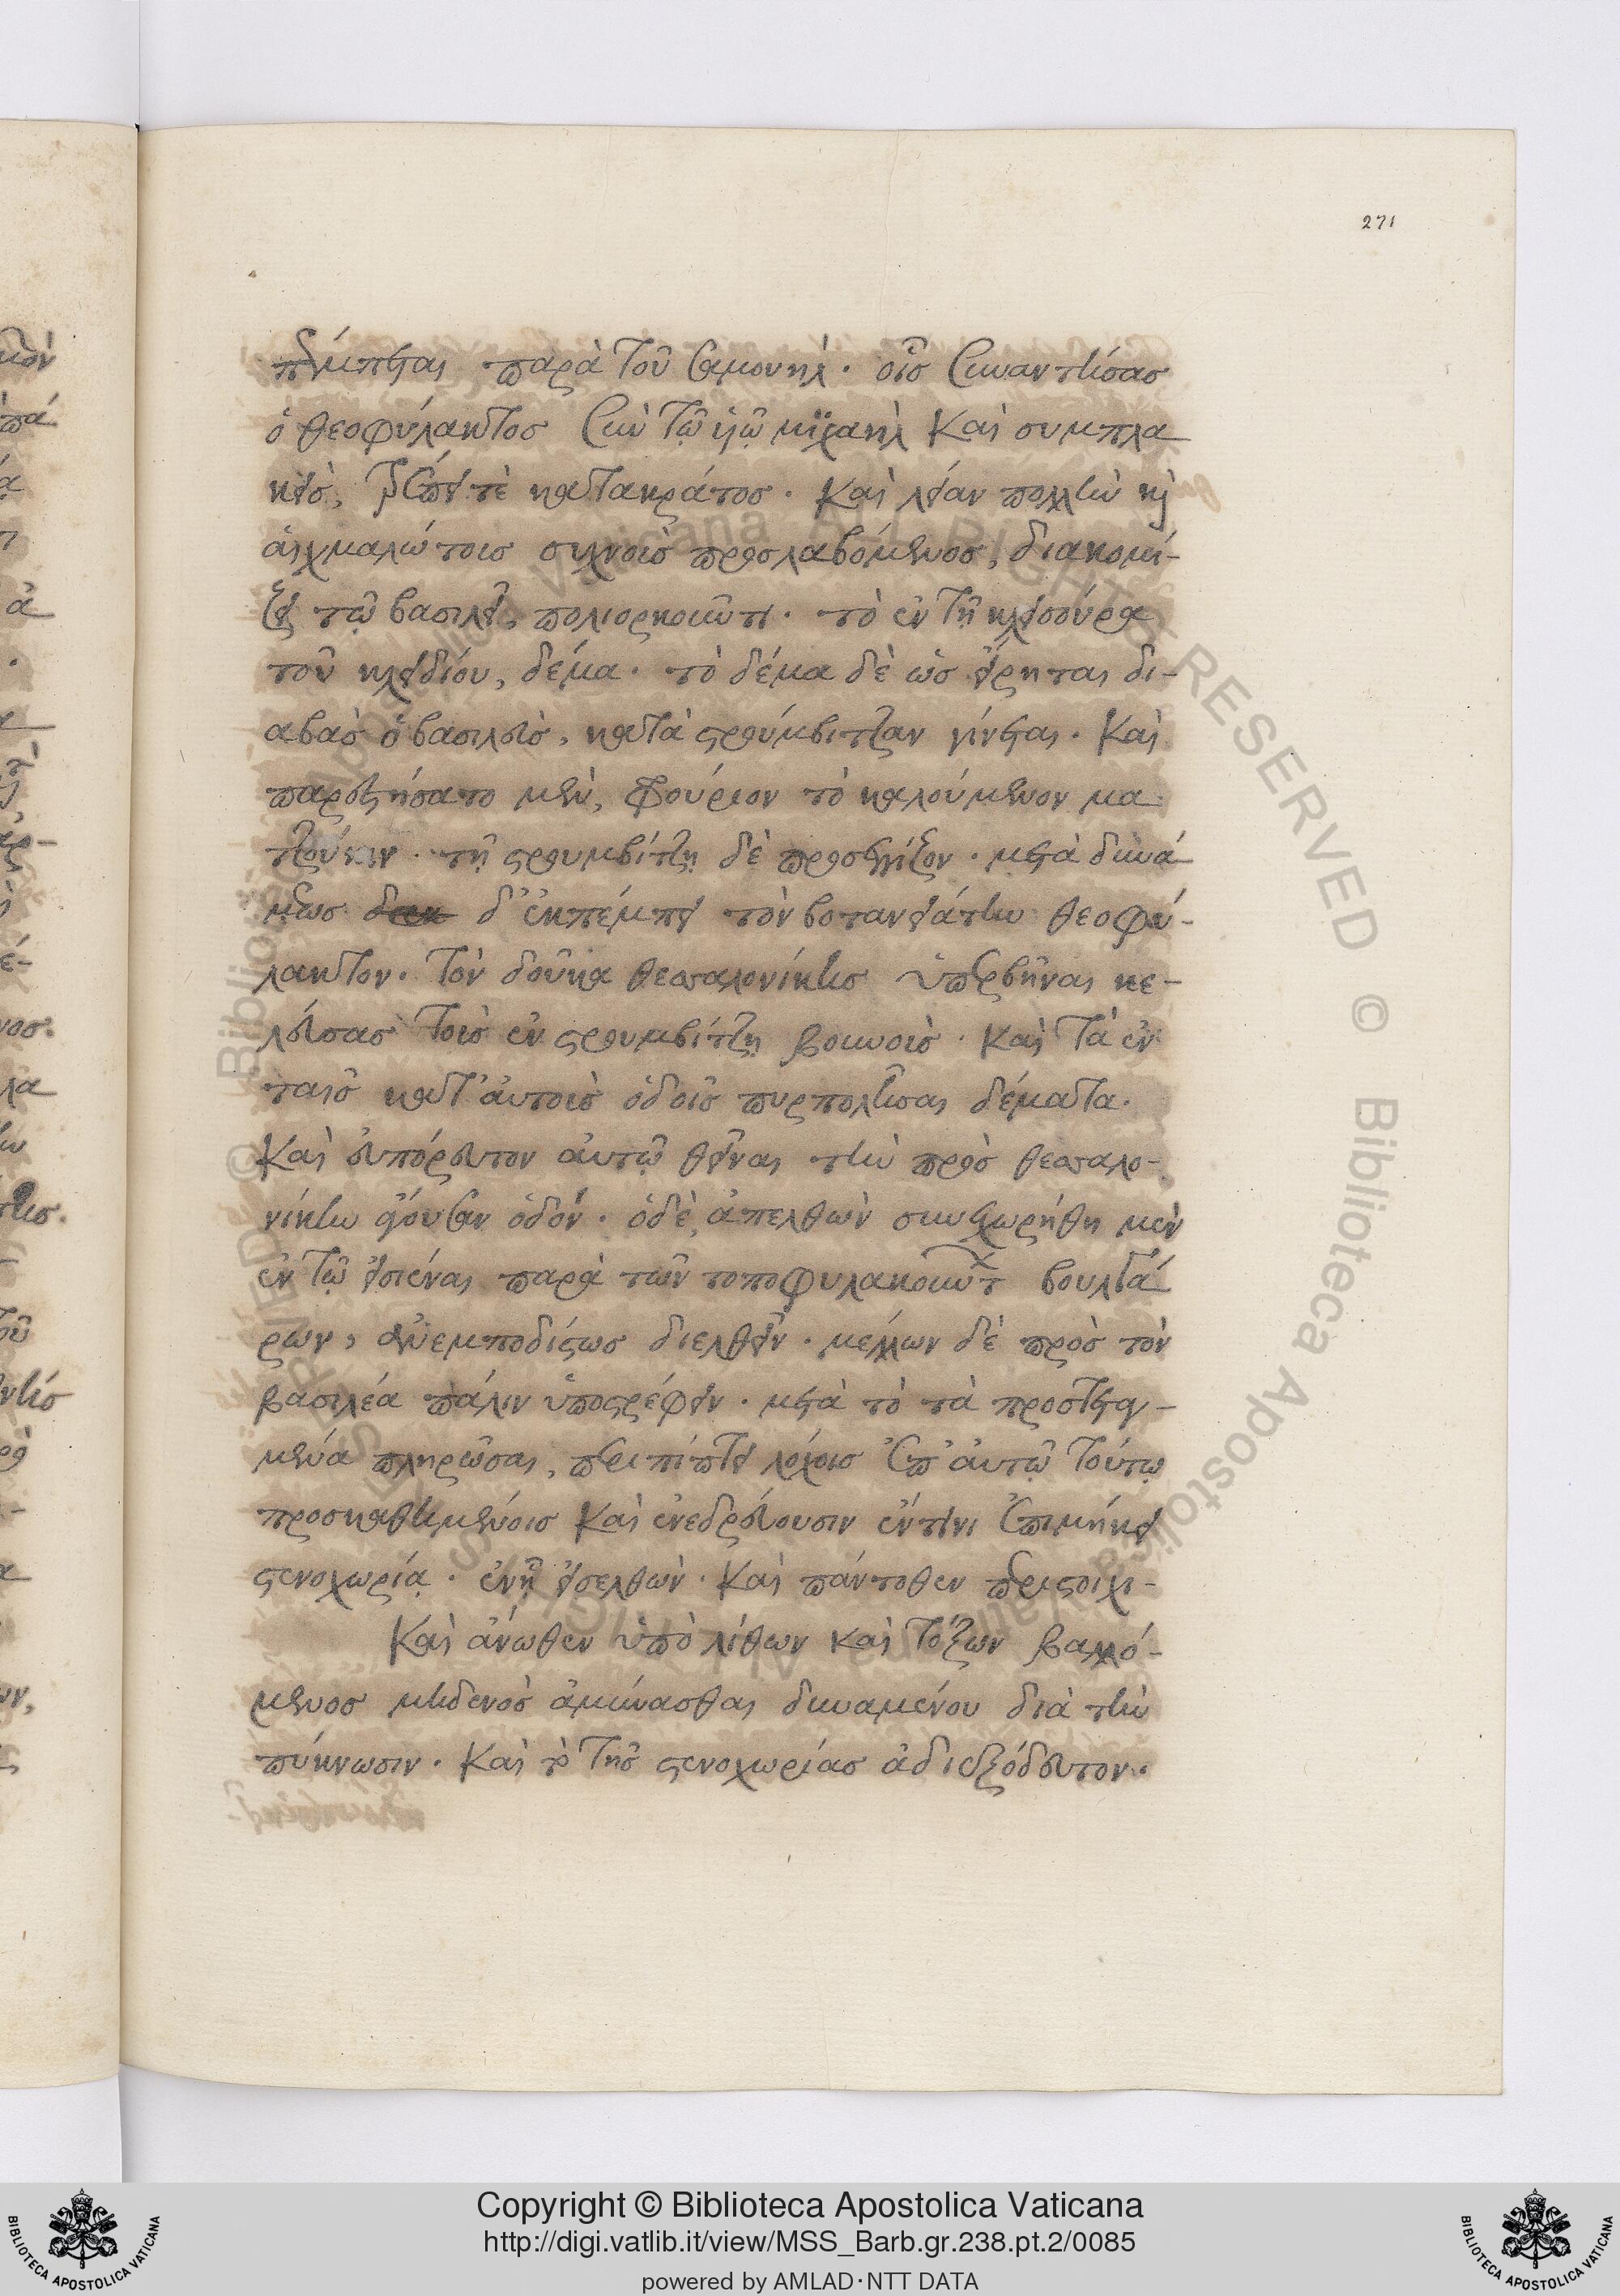 271
πέμπεται παρὰ τοῦ σαμουὴλ. οἷς συναντήσας
ὁ θεοφύλακτος σὺν τῷ ὑιῷ μιχαὴλ καὶ συμπλα
κεὶς, τρέπει τὲ κατακράτος. καὶ λείαν πολλὴν κὶ
αἰχμαλώτοις συχνοῖς προσλαβόμενος, διακομί-
ζει τῷ βασιλεῖ, πολιορκοῦντι. τὸ ἐν τῇ κλεισούρα
τοῦ κλειδίου, δέμα. τὸ δέμα δὲ ὡς εἴρηται δι-
αβὰς ὁ βασιλεὺς, κατὰ στρούμβιτζαν γίνεται. καὶ
παρεστήσατο μὲν, φρούριον τὸ καλούμενον μα
τζούκιν. τῇ στρουμβίτζῃ δὲ προσεγγίζον. μετὰ δυνά
μεως δ' ἐκπέμπει τὸν βοτανειάτην θεοφύ-
λακτον. τὸν δοῦκα θεσσαλονίκης ὑπερβῆναι κε-
λεύσας τοῖς ἐν στρουμβίτζῃ βουνοῖς. καὶ τὰ ἐν
ταῖς κατ' ἀυτοὶς ὁδοῖς πυρπολῆσαι δέματα.
καὶ ἐυπόρευτον ἀυτῷ θεῖναι τὴν πρὸς θεσσαλο-
νίκην ἄγουσαν ὁδόν. ὁδὲ, ἀπελθὼν συνεχωρήθη μὲν
ἐν τῷ εἰσιέναι παρὰ τῶν τοποφυλακούντ βουλγά
ρων, ἀνεμποδίστως διελθεῖν. μέλλων δὲ πρὸς τὸν
βασιλέα πάλιν ὑποστρέφειν. μετὰ τὸ τὰ προστεταγ-
μένα πληρῶσαι, περιπίπτει λόχοις ἐπ' ἀυτῷ τούτῳ
προσκαθημένοις καὶ ἐνεδρεύουσιν ἔν τινι ἐπιμήκει
στενοχωρίᾳ. ἐνῇ εἰσελθὼν. καὶ πάντοθεν περιστοιχι-
καὶ ἄνωθεν ὑπὸ λίθων καὶ τόξων βαλλό-
μενος μηδενὸς ἀμύνασθαι δυναμένου διὰ τὴν
πύκνωσιν. καὶ τὸ τῆς στενοχωρίας ἀδιεξόδευτον.
Copyright © Biblioteca Apostolica Vaticana
http://digi.vatlib.it/view/MSS_Barb.gr.238.pt.2/0085
powered by AMLAD·NTT DATA
BIBLIOTECA APOSTOLICA VATICANA
BIBLIOTECA APOSTOLICA VATICANA